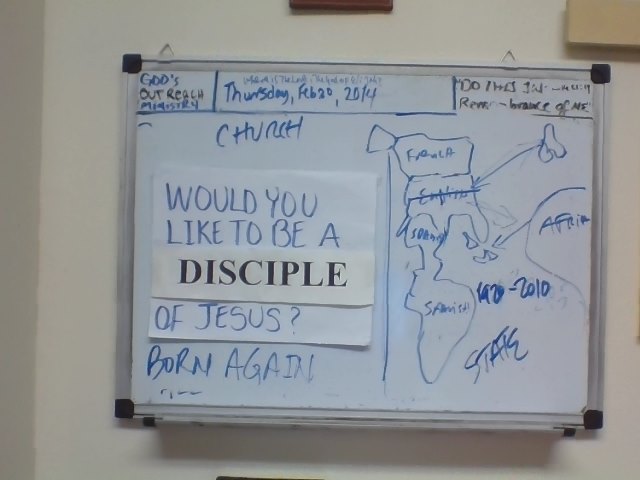 GOD'S
OUTREACH
MINISTRY
Thursday, Feb 20, 2014
"DO THIS IN
Remembrance of ME"
CHURCH
WOULD YOU
LIKE TO BE A
DISCIPLE
OF JESUS?
BORN AGAIN
FRENCH
English
SPANISH
SPANISH
AFRICA
1920-2010
STATE